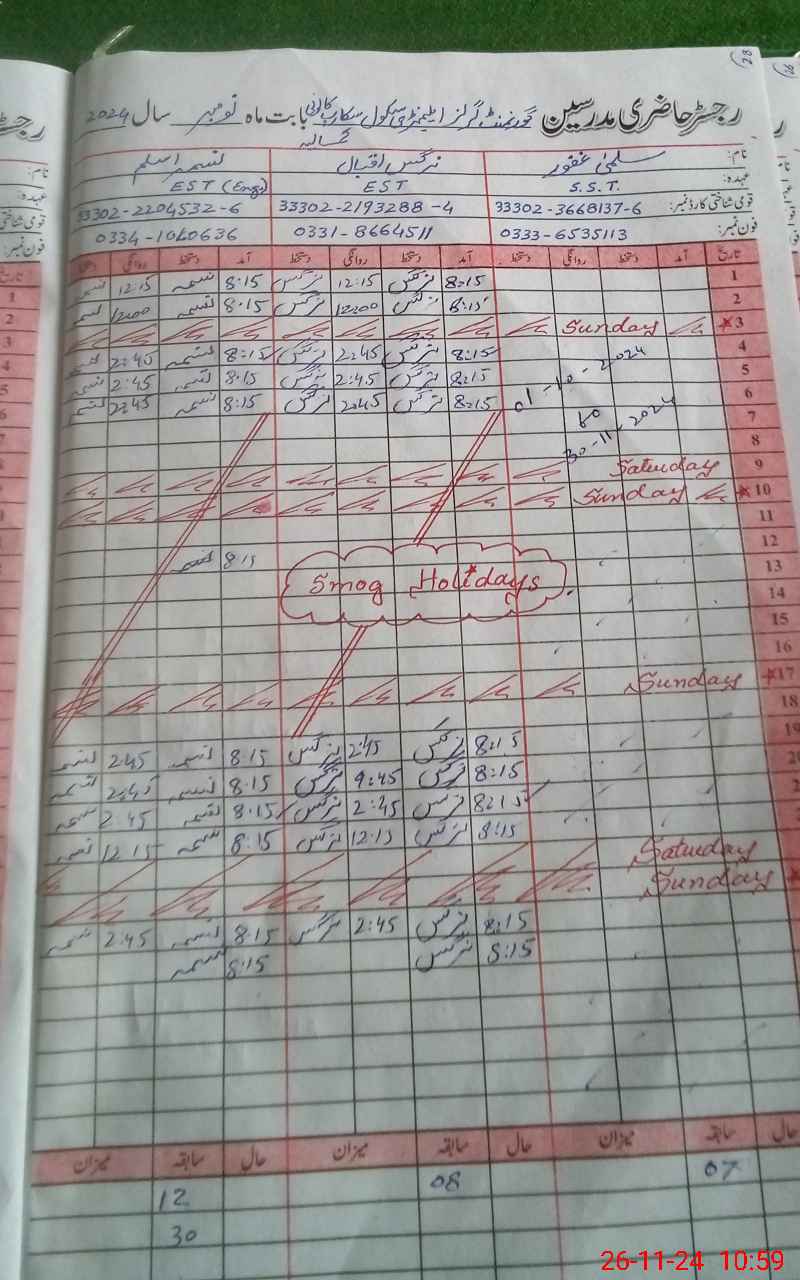 28
رجسٹر حاضری مدرسین گورنمنٹ گرلز ایلیمنٹری سکول سکارپ کالونی بابت ماہ نومبر سال 2024
نام: سلمیٰ غفور نرگس اقبال نسیم اسلم
عہدہ: S.S.T. EST EST (Eng)
قومی شناختی کارڈ نمبر: 33302-3668137-6 33302-2193288-4 33302-2204532-6
فون نمبر: 0333-6535113 0331-8664511 0334-1040636
تاریخ آمد دستخط روانگی دستخط آمد دستخط روانگی دستخط آمد دستخط روانگی دستخط
1 8:15 نرگس 12:15 نرگس 8:15 نسیمہ 12:15 نسیمہ
2 8:15 نرگس 12:00 نرگس 8:15 نسیمہ 12:00 نسیمہ
*3 Sunday
4 8:15 نرگس 2:45 نرگس 8:15 نسیمہ 2:45 نسیمہ
5 8:15 نرگس 2:45 نرگس 8:15 نسیمہ 2:45 نسیمہ
6 01-10-2024 8:15 نرگس 2:45 نرگس 8:15 نسیمہ 2:45 نسیمہ
7 to
8 30-11-2024
9 Satuday
*10 Sunday
11
12
13 Smog Holidays 8:15 نسیمہ
14
15
16
*17 Sunday
18
19 8:15 نرگس 2:45 نرگس 8:15 نسیمہ 2:45 نسیمہ
8:15 نرگس 9:45 نرگس 8:15 نسیمہ 2:45 نسیمہ
8:15 نرگس 2:45 نرگس 8:15 نسیمہ 2:45 نسیمہ
8:15 نرگس 12:15 نرگس 8:15 نسیمہ 12:15 نسیمہ
Satuday
Sunday
8:15 نرگس 2:45 نرگس 8:15 نسیمہ 2:45 نسیمہ
8:15 نرگس 8:15 نسیمہ
حال سابقہ میزان حال سابقہ میزان حال سابقہ میزان
07 08 12
30
26-11-24 10:59